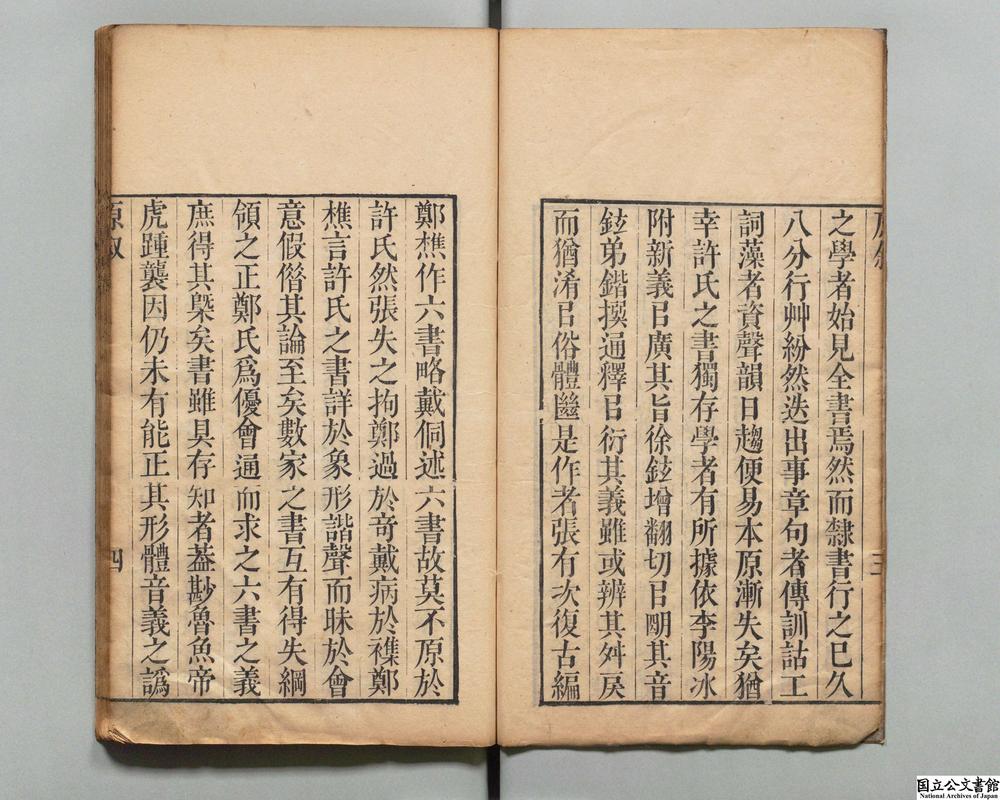 之學者始見全書焉然而隸書行之已久
八分行艸紛然迭出事章句者傳訓詁工
詞藻者資聲韻日趨便易本原漸失矣猶
幸許氏之書獨存學者有所據依李陽冰
附新義㠯廣其旨徐鉉增翻切㠯朙其音
鉉弟鍇撰通釋㠯衍其義雖或辨其舛戾
而猶淆㠯俗體繇是作者張有次復古編
三
鄭樵作六書略戴侗述六書故莫不原於
許氏然張失之拘鄭過於竒戴病於襍鄭
樵言許氏之書詳於象形諧聲而昧於會
意假借其論至矣數家之書互有得失綱
領之正鄭氏爲優會通而求之六書之義
庶得其槩矣書雖具存知者葢尠魯魚帝
虎踵襲因仍未有能正其形體音義之譌
原敘
四
国立公文書館
National Archives of Japan